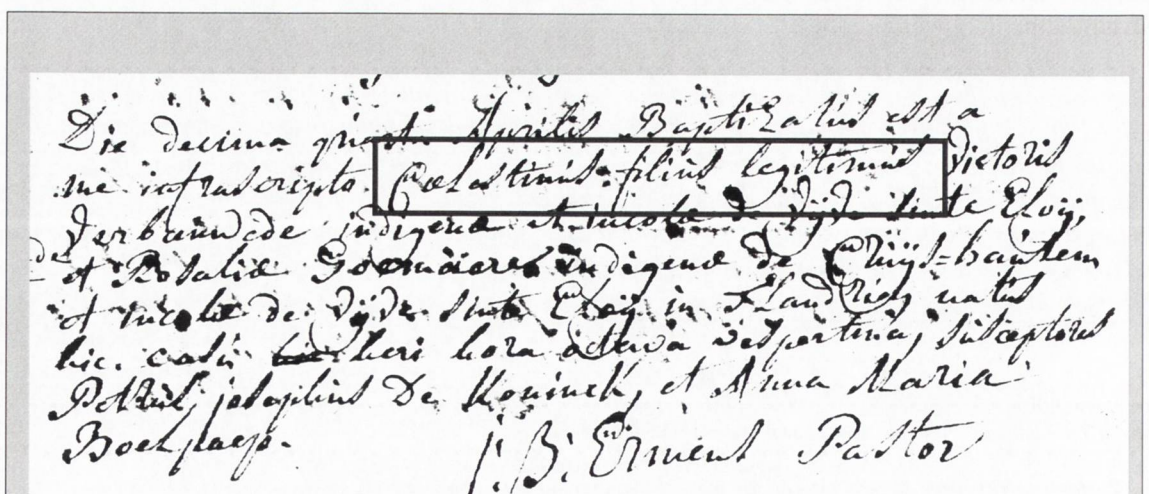 Die decima quinta Aprilis Baptizatus est a
me infrascripto Cœlestinus filius legitimus Victoris
Verbauwede indigenæ et incolæ de Vijve Sinte Eloij,
et Rosaliæ indigenæ de Cruijs=hautem
et incolæ de Vijve Sinte Eloij in Flandria, natus
hic casu heri hora octava vespertina, susceptores
Petrus josephus De Koninck, et Anna Maria
J: B: Erment Pastor